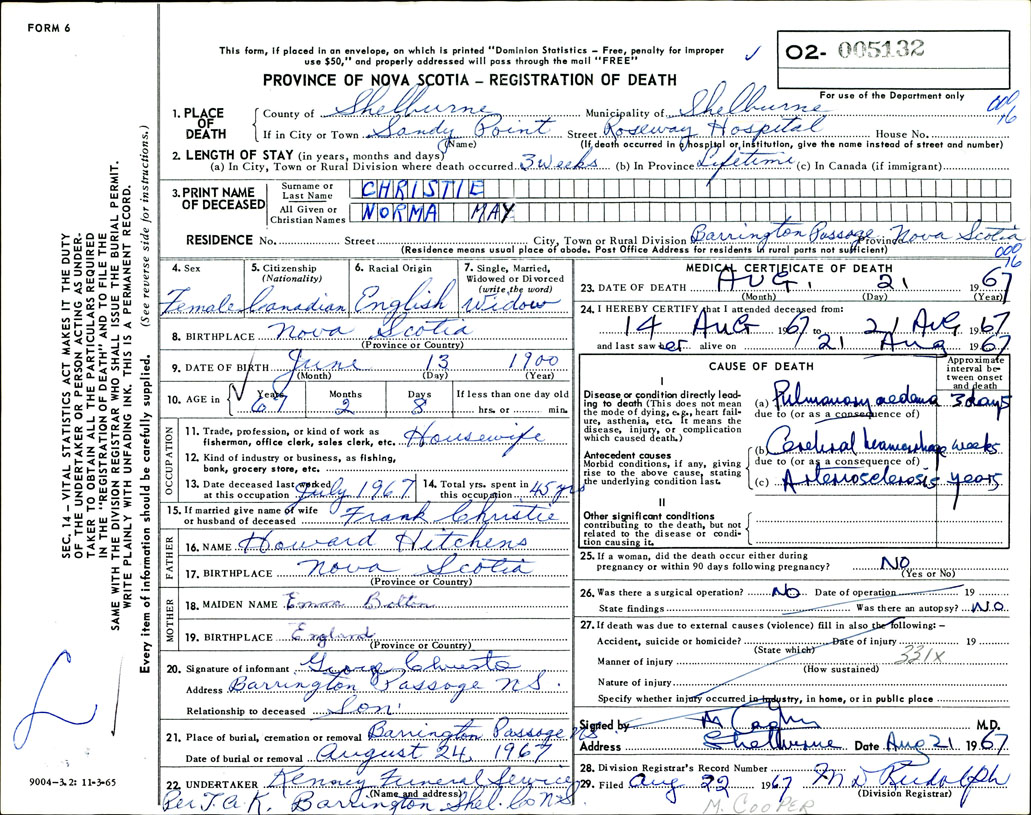 FORM 6
This form, if placed in an envelope, on which is printed "Dominion Statistics – Free, penalty for improper
use $50," and properly addressed will pass through the mail "FREE"
02- 005132
For use of the Department only
PROVINCE OF NOVA SCOTIA – REGISTRATION OF DEATH
000
16
1. PLACE OF DEATH County of Shelburne Municipality of Shelburne
If in City or Town Sandy Point Street Roseway Hospital House No.
(Name) (If death occurred in hospital or institution, give the name instead of street and number)
2. LENGTH OF STAY (in years, months and days)
(a) In City, Town or Rural Division where death occurred 3 weeks (b) In Province Lifetime (c) In Canada (if immigrant)
3. PRINT NAME OF DECEASED
Surname or Last Name CHRISTIE
All Given or Christian Names NORMA MAY
RESIDENCE No. Street City, Town or Rural Division Barrington Passage Province Nova Scotia
(Residence means usual place of abode. Post Office Address for residents in rural parts not sufficient)
000
16
4. Sex Female
5. Citizenship (Nationality) Canadian
6. Racial Origin English
7. Single, Married, Widowed or Divorced (write the word) Widow
8. BIRTHPLACE Nova Scotia
(Province or Country)
9. DATE OF BIRTH June 13 1900
(Month) (Day) (Year)
10. AGE in Years 67 Months 2 Days 8 If less than one day old hrs. or min.
OCCUPATION
11. Trade, profession, or kind of work as fisherman, office clerk, sales clerk, etc. Housewife
12. Kind of industry or business, as fishing, bank, grocery store, etc.
13. Date deceased last worked at this occupation July 1967
14. Total yrs. spent in this occupation 45 yrs
15. If married give name of wife or husband of deceased Frank Christie
FATHER
16. NAME Howard Hitchens
17. BIRTHPLACE Nova Scotia
(Province or Country)
MOTHER
18. MAIDEN NAME Emma Bolton
19. BIRTHPLACE England
(Province or Country)
20. Signature of informant George Christie
Address Barrington Passage N.S.
Relationship to deceased Son
21. Place of burial, cremation or removal Barrington Passage NS
Date of burial or removal August 24, 1967
22. UNDERTAKER Kenney Funeral Service
(Name and address)
Per T.A.K. Barrington Shel. Co N.S.
MEDICAL CERTIFICATE OF DEATH
23. DATE OF DEATH AUG. 21 1967
(Month) (Day) (Year)
24. I HEREBY CERTIFY that I attended deceased from:
14 Aug 1967 to 21 Aug 1967
and last saw her alive on 21 Aug 1967
CAUSE OF DEATH
Approximate interval between onset and death
I
Disease or condition directly leading to death (This does not mean the mode of dying, e.g., heart failure, asthenia, etc. It means the disease, injury, or complication which caused death.)
(a) Pulmonary oedema 3 days
due to (or as a consequence of)
Antecedent causes
Morbid conditions, if any, giving rise to the above cause, stating the underlying condition last.
(b) Cerebral haemorrhage weeks
due to (or as a consequence of)
(c) Arteriosclerosis years
II
Other significant conditions
contributing to the death, but not related to the disease or condition causing it.
25. If a woman, did the death occur either during pregnancy or within 90 days following pregnancy? NO
(Yes or No)
26. Was there a surgical operation? No Date of operation 19
State findings Was there an autopsy? No
27. If death was due to external causes (violence) fill in also the following: –
Accident, suicide or homicide? Date of injury 19
(State which)
331X
Manner of injury
(How sustained)
Nature of injury
Specify whether injury occurred in industry, in home, or in public place
Signed by M.D.
Address Shelburne Date Aug 21 1967
28. Division Registrar's Record Number
29. Filed Aug 22 1967 M D Rudolph
(Division Registrar)
M. COOPER
SEC. 14 – VITAL STATISTICS ACT MAKES IT THE DUTY
OF THE UNDERTAKER OR PERSON ACTING AS UNDER-
TAKER TO OBTAIN ALL THE PARTICULARS REQUIRED
IN THE "REGISTRATION OF DEATH" AND TO FILE THE
SAME WITH THE DIVISION REGISTRAR WHO SHALL ISSUE THE BURIAL PERMIT.
WRITE PLAINLY WITH UNFADING INK. THIS IS A PERMANENT RECORD.
Every item of information should be carefully supplied. (See reverse side for instructions.)
9004-3.2: 11-3-65